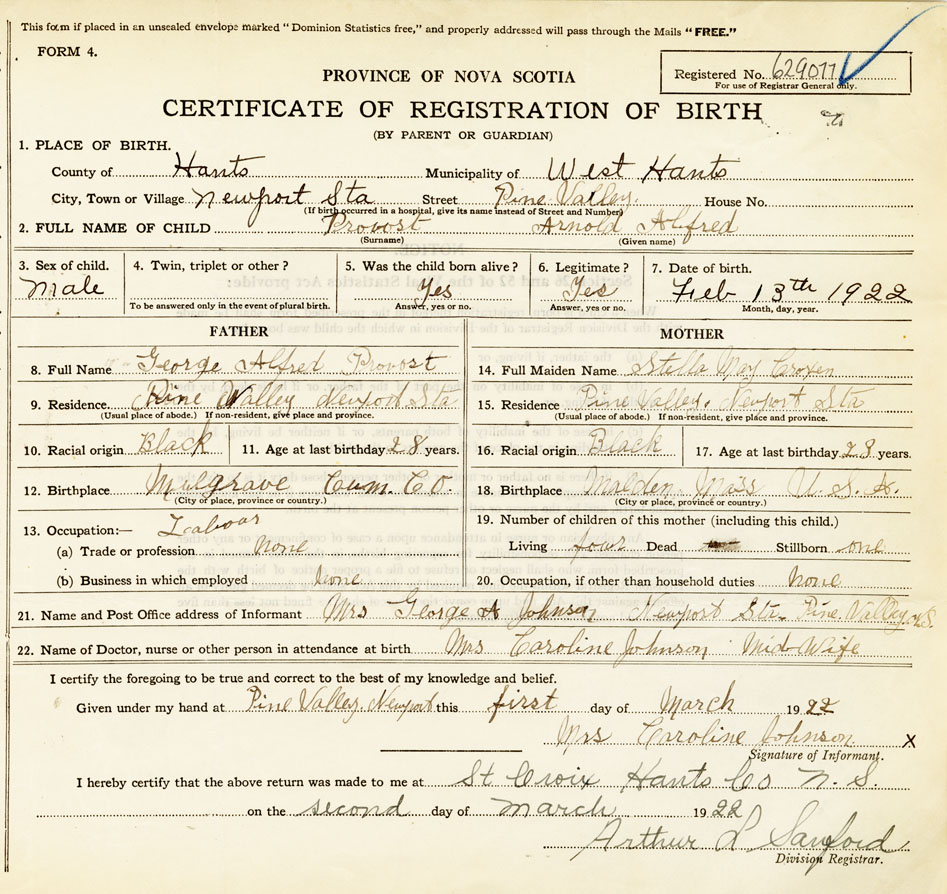 This form if placed in an unsealed envelope marked "Dominion Statistics free," and properly addressed will pass through the Mails "FREE."
FORM 4.
PROVINCE OF NOVA SCOTIA
Registered No. 629077
For use of Registrar General only.
CERTIFICATE OF REGISTRATION OF BIRTH
(BY PARENT OR GUARDIAN)
1. PLACE OF BIRTH.
County of Hants Municipality of West Hants
City, Town or Village Newport Sta Street Pine Valley. House No.
(If birth occurred in a hospital, give its name instead of Street and Number)
2. FULL NAME OF CHILD Provost Arnold Alfred
(Surname) (Given name)
3. Sex of child. 4. Twin, triplet or other? 5. Was the child born alive? 6. Legitimate? 7. Date of birth.
Male Yes Yes Feb 13th 1922
To be answered only in the event of plural birth. Answer, yes or no. Answer, yes or no. Month, day, year.
FATHER MOTHER
8. Full Name George Alfred Provost 14. Full Maiden Name Stella May Croxen
9. Residence Pine Valley Newport Sta 15. Residence Pine Valley, Newport Sta
(Usual place of abode.) If non-resident, give place and province. (Usual place of abode.) If non-resident, give place and province.
10. Racial origin Black 11. Age at last birthday 28 years. 16. Racial origin Black 17. Age at last birthday 23 years.
12. Birthplace Mulgrave Cum. Co. 18. Birthplace Malden Mass U.S.A.
(City or place, province or country.) (City or place, province or country.)
13. Occupation:— Labour 19. Number of children of this mother (including this child.)
(a) Trade or profession none Living four Dead Stillborn one
(b) Business in which employed none 20. Occupation, if other than household duties none
21. Name and Post Office address of Informant Mrs George A Johnson Newport Sta Pine Valley N.S
22. Name of Doctor, nurse or other person in attendance at birth Mrs Caroline Johnson Mid Wife
I certify the foregoing to be true and correct to the best of my knowledge and belief.
Given under my hand at Pine Valley. Newport this first day of March 1922
Mrs Caroline Johnson X
Signature of Informant.
I hereby certify that the above return was made to me at St Croix Hants Co N.S.
on the second day of March 1922
Arthur L Sanford
Division Registrar.